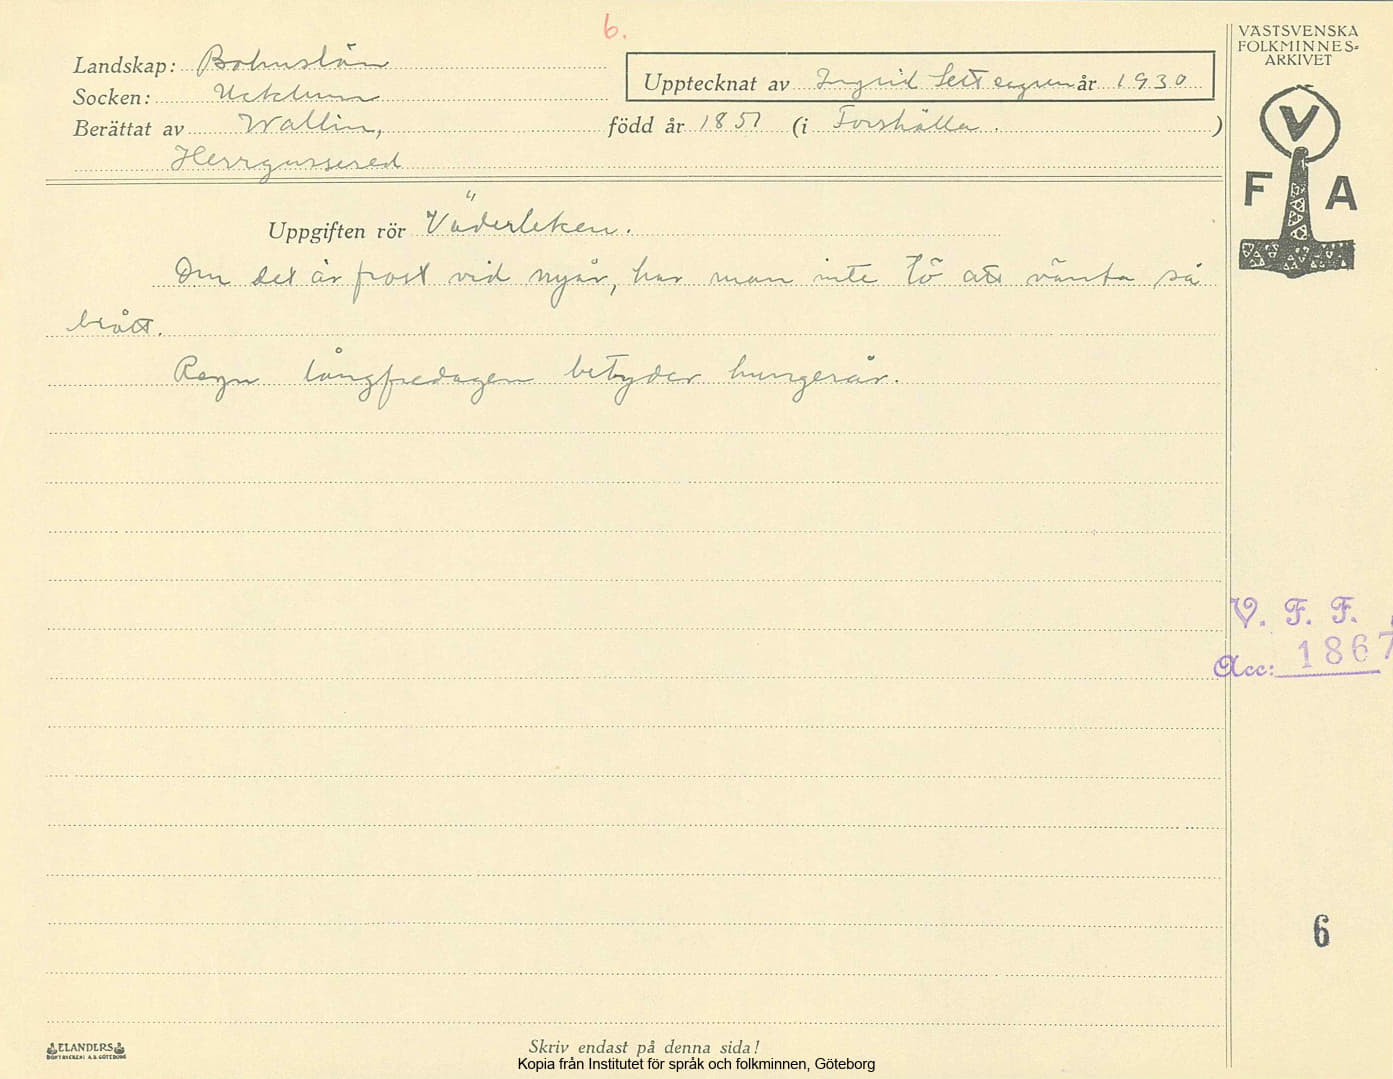 6.
VÄSTSVENSKA
FOLKMINNES-
ARKIVET
Landskap: Bohuslän
Upptecknat av Ingrid år 1930
Socken: Ucklum
Berättat av Wallin, född år 1851 (i Forshälla.)
Herrgussered
V
F A
Uppgiften rör Väderleken.
Om det är frost vid nyår, har man inte tö att vänta så
brått.
Regn långfredagen betyder hungerår.
V. F. F.
Acc: 1867
6
ELANDERS
BOKTRYCKERI A.B. GÖTEBORG
Skriv endast på denna sida!
Kopia från Institutet för språk och folkminnen, Göteborg